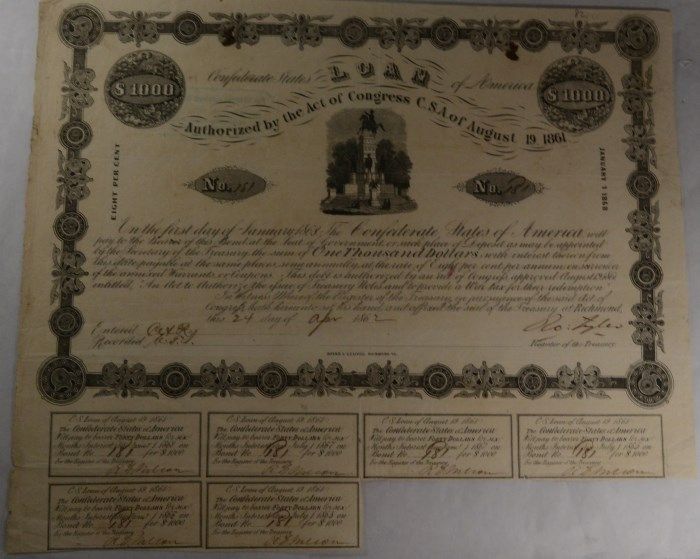 82
Confederate States LOAN of America
$1000
$1000
Authorized by the Act of Congress C.S.A of August 19 1861
EIGHT PER CENT
JANUARY 1 1868
No. 181
No. 181
On the first day of January 1868 The Confederate States of America will
pay to the Bearer of this Bond, at the Seat of Government or such place of Deposit as may be appointed
by the Secretary of the Treasury the sum of One Thousand Dollars with interest thereon from
this date payable at the same place semi annually, at the rate of Eight per cent per annum on surrender
of the annexed Warrants or Coupons. This debt is authorized by an Act of Congress approved August 19 1861
entitled, An Act to Authorize the issue of Treasury Notes and to provide a War tax for their redemption
In Witness Whereof the Register of the Treasury in pursuance of the said Act of
Congress, hath hereunto set his hand, and affixed the seal of the Treasury at Richmond,
this 24 day of Apr 1862
Entered
Recorded
Ro. Tyler
Register of the Treasury
RICHMOND VA.
C.S. Loan of August 19 1861
The Confederate States of America
Will pay to bearer FORTY DOLLARS for six
Months Interest due
Bond No. 181 for $1000
For the Register of the Treasury
C.S. Loan of August 19 1861
The Confederate States of America
Will pay to bearer FORTY DOLLARS for six
Months Interest due July 1 on
Bond No. 181 for $1000
For the Register of the Treasury
C.S. Loan of August 19 1861
The Confederate States of America
Will pay to bearer FORTY DOLLARS for six
Months Interest due on
Bond No. 181 for $1000
For the Register of the Treasury
C.S. Loan of August 19 1861
The Confederate States of America
Will pay to bearer FORTY DOLLARS for six
Months Interest due July 1 on
Bond No. 181 for $1000
For the Register of the Treasury
C.S. Loan of August 19 1861
The Confederate States of America
Will pay to bearer FORTY DOLLARS for six
Months Interest due on
Bond No. 181 for $1000
For the Register of the Treasury
C.S. Loan of August 19 1861
The Confederate States of America
Will pay to bearer FORTY DOLLARS for six
Months Interest due July 1 on
Bond No. 181 for $1000
For the Register of the Treasury